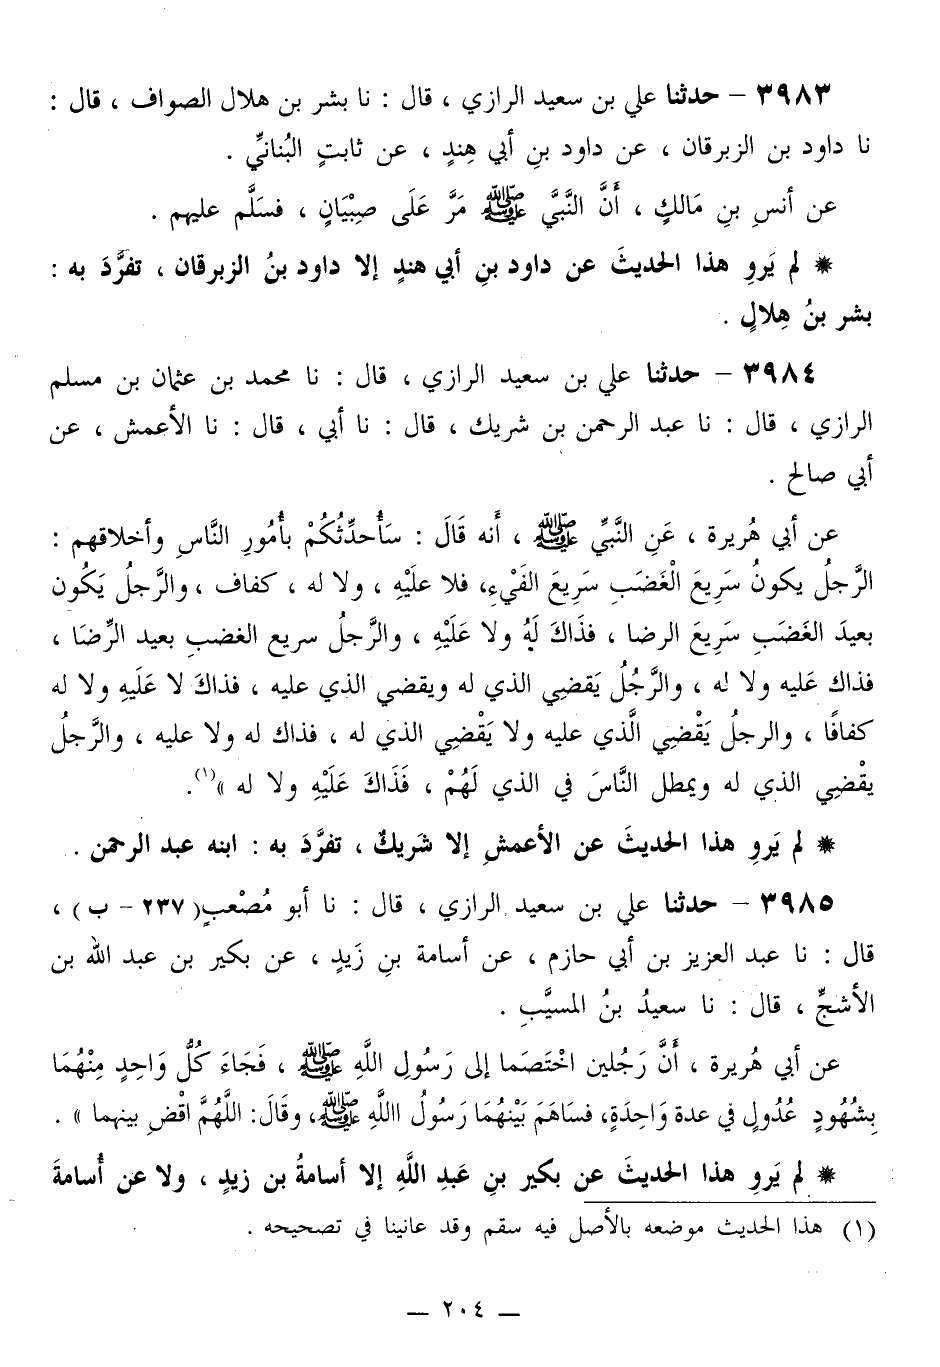 ٣٩٨٣ – حدثنا علي بن سعيد الرازي ، قال : نا بشر بن هلال الصواف ، قال :
نا داود بن الزبرقان ، عن داود بنِ أبي هِندٍ ، عن ثابتٍ البُنانيِّ .
عن أنسِ بنِ مَالكٍ ، أَنَّ النَّبيَّ ﷺ مَرَّ عَلَى صِبْيَانٍ ، فسَلَّم عليهم .
* لم يَروِ هذا الحديثَ عن داود بنِ أبي هندٍ إلا داود بنُ الزبرقان ، تفرَّدَ به :
بشر بنُ هِلالٍ .
٣٩٨٤ – حدثنا علي بن سعيد الرازي ، قال : نا محمد بن عثمان بن مسلم
الرازي ، قال : نا عبد الرحمن بن شريك ، قال : نا أبي ، قال : نا الأعمش ، عن
أبي صالح .
عن أبي هُريرة ، عَنِ النَّبيِّ ﷺ ، أَنه قَالَ : سَأُحدِّثُكُمْ بأُمُورِ النَّاسِ وأخلاقهم :
الرَّجلُ يكونُ سَرِيعَ الْغَضَبِ سَرِيعَ الفَيْءِ، فلا علَيْهِ ، ولا له ، كفاف ، والرَّجلُ يَكُون
بعيدَ الغَضَبِ سَرِيعَ الرضا ، فذَاكَ لَهُ ولا عَلَيْهِ ، والرَّجلُ سريع الغضبِ بعيد الرِّضَا ،
فذاك عَليه ولا له ، والرَّجُلُ يَقضِي الذي له ويقضي الذي عليه ، فذاكَ لا عَلَيهِ ولا له
كفافًا ، والرجلُ يَقْضِي الَّذي عليه ولا يَقْضِي الذي له ، فذاك له ولا عليه ، والرَّجلُ
يقْضِي الذي له ويمطل النَّاسَ في الذي لَهُمْ ، فَذَاكَ عَلَيْهِ ولا له »(١).
* لم يَروِ هذا الحديثَ عن الأعمشِ إلا شَريكٌ ، تفرَّدَ به : ابنه عبد الرحمن .
٣٩٨٥ – حدثنا علي بن سعيد الرازي ، قال : نا أبو مُصْعبٍ ( ٢٣٧ – ب ) ،
قال : نا عبد العزيز بن أبي حازم ، عن أسامة بنِ زَيدٍ ، عن بكير بن عبد الله بن
الأشجِّ ، قال : نا سعيدُ بنُ المسيَّبِ .
عن أبي هُريرة ، أَنَّ رَجُلين اخْتَصَما إلى رَسُولِ اللَّهِ ﷺ ، فَجَاءَ كُلُّ وَاحِدٍ مِنْهُمَا
بِشُهُودٍ عُدُولٍ في عدة وَاحِدَةٍ، فسَاهَمَ بَيْنهُمَا رَسُولُ االلَّهِ ﷺ، وقَالَ: اللَّهُمَّ اقْضِ بينهما » .
* لم يَروِ هذا الحديثَ عن بكير بنِ عَبدِ اللَّهِ إلا أسامةُ بن زيدٍ ، ولا عن أُسامةَ
(١) هذا الحديث موضعه بالأصل فيه سقم وقد عانينا في تصحيحه .
— ٢٠٤ —